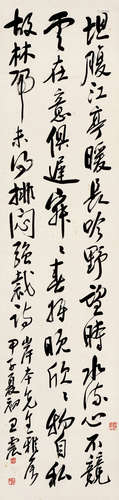 坦腹江亭暖長吟野望時水流心不競
雲在意俱遲寂〻春將晚欣〻物自私
故林歸未得排悶強裁詩
岸本先生雅屬
甲子夏初王震